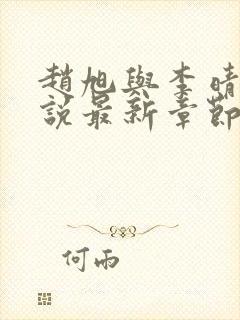 趙旭與李晴
說最新章節
何雨